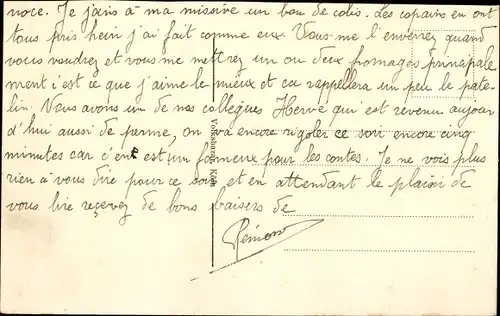 noce. Je joins à ma missive un bon de colis. Les copains en ont
tous pris hein j'ai fait comme eux. Vous me l'enverrez quand
vous voudrez et vous me mettrez un ou deux fromages principale
ment c'est ce que j'aime le mieux et ça rappellera un peu le pate-
lin. Nous avons un de nos collègues Hervé qui est revenu aujour
d'hui aussi de perme, on va encore rigoler ce soir encore cinq
minutes car c'en est un fameux pour les contes. Je ne vois plus
rien à vous dire pour ce soir et en attendant le plaisir de
vous lire recevez de bons baisers de